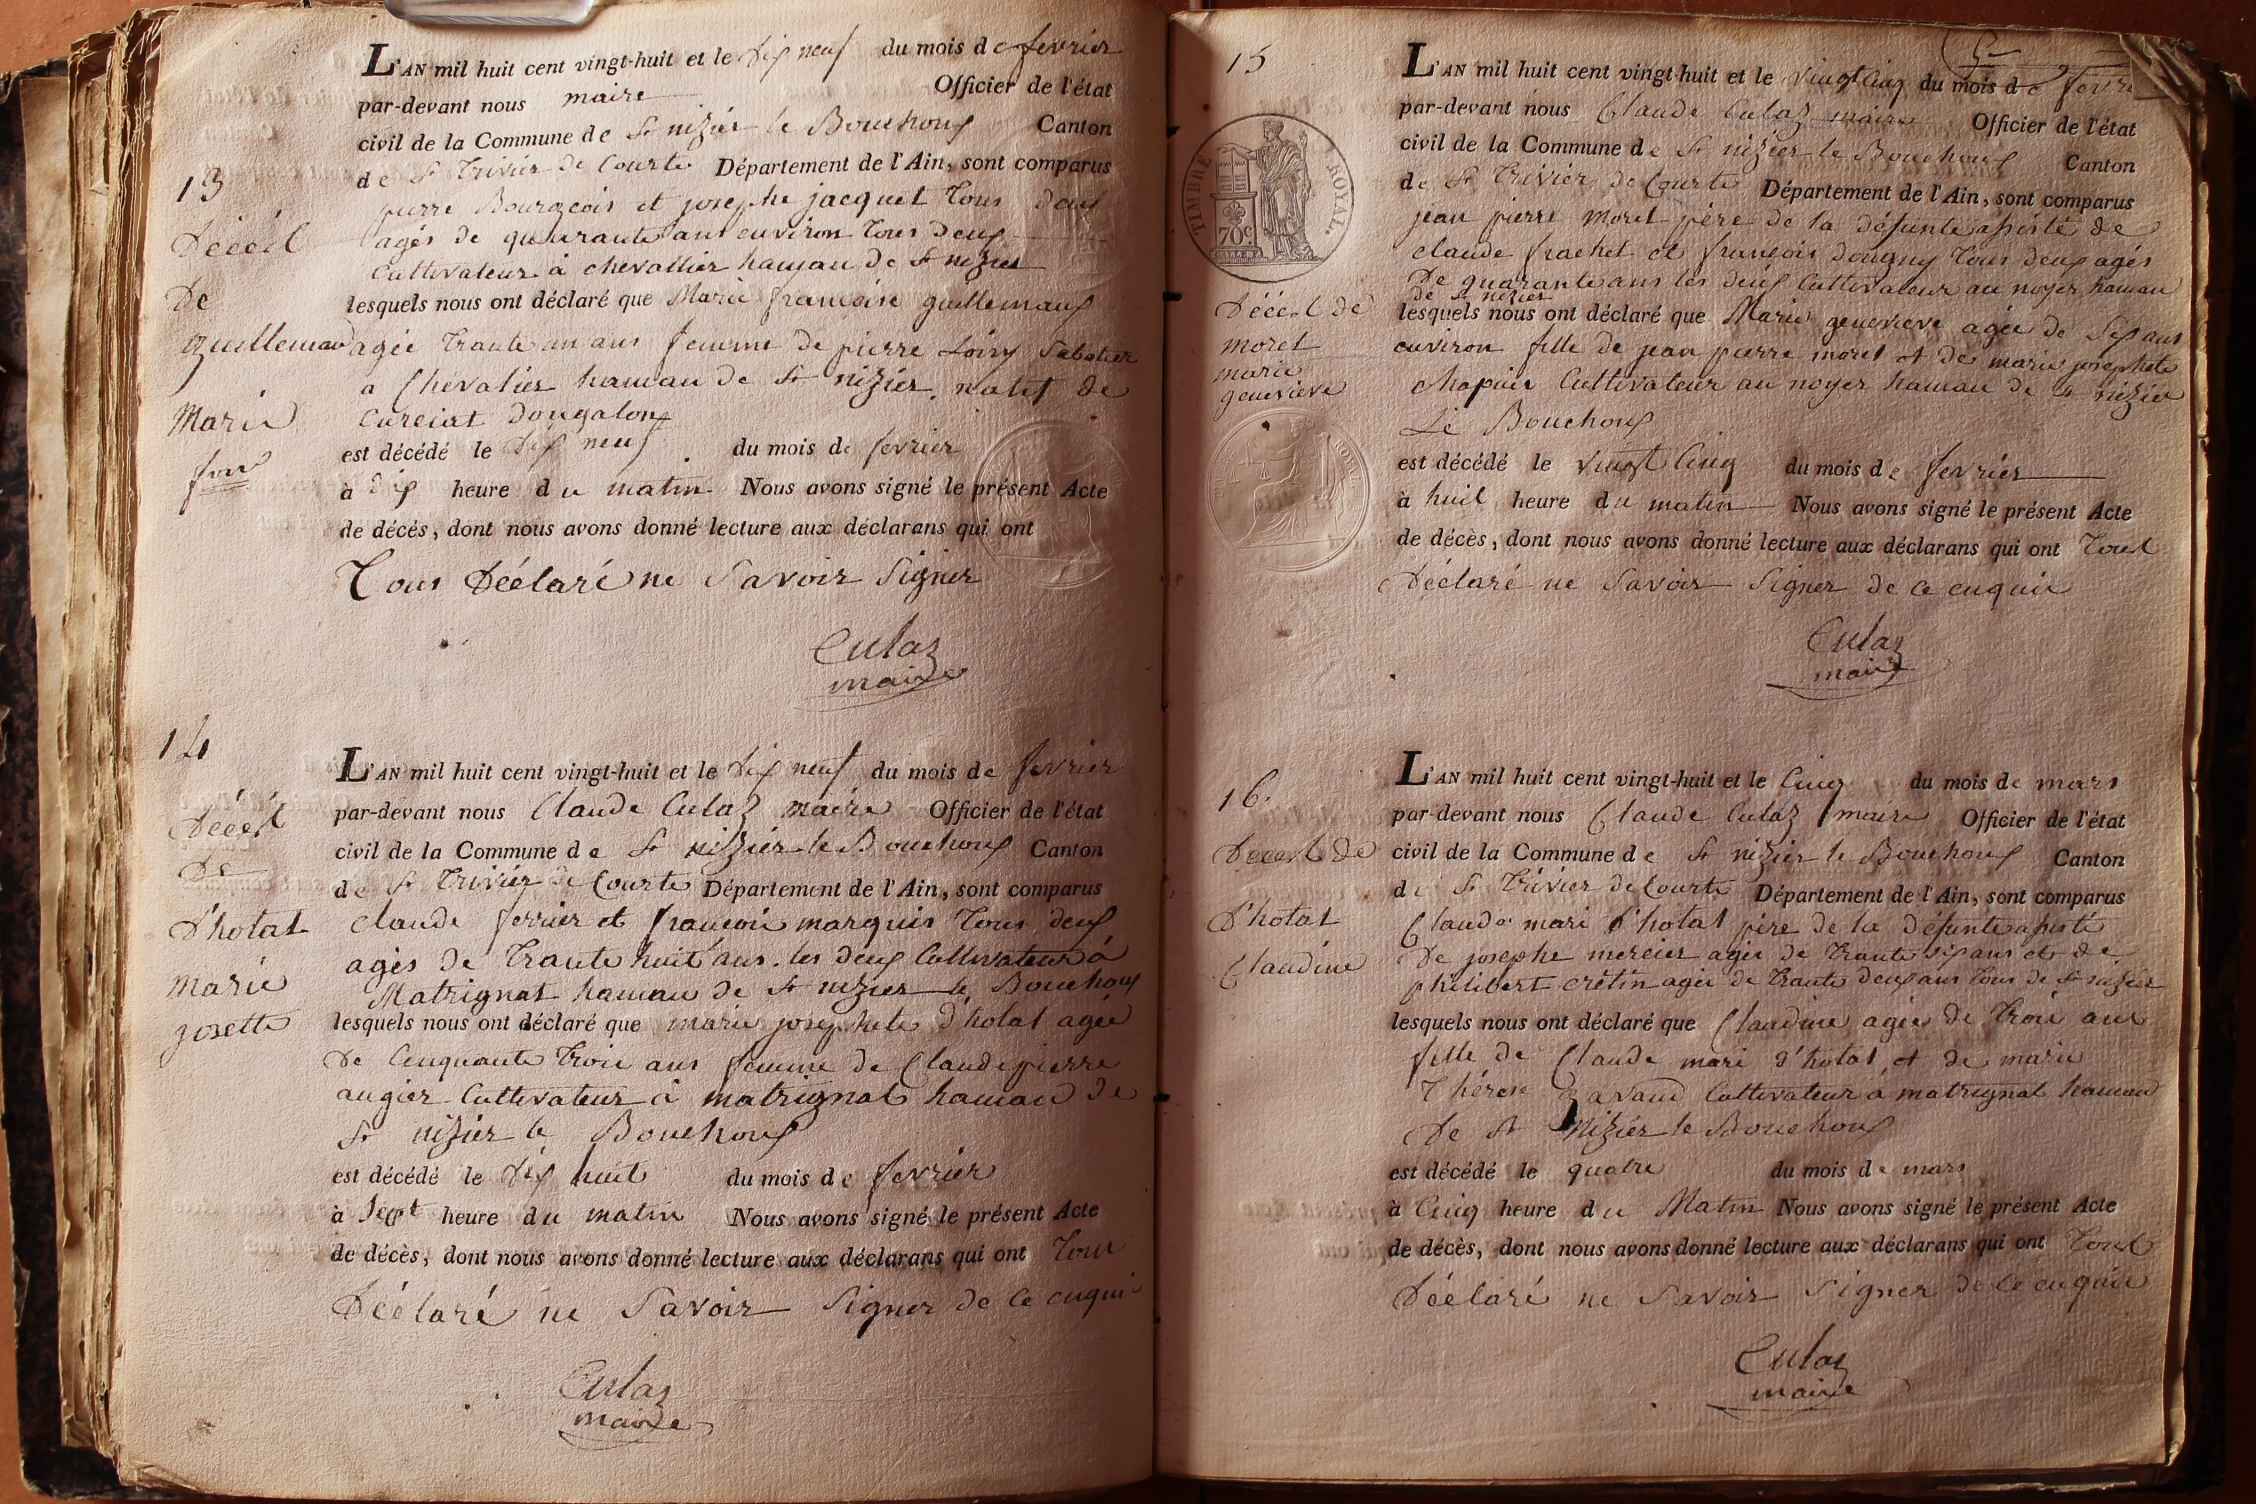 13
Décéd
De
guillemau
Marie
fse
L'AN mil huit cent vingt-huit et le dix neuf du mois de fevrier
par-devant nous maire Officier de l'état
civil de la Commune de St nizier le Bouchoux Canton
de St Trivier de Courte Département de l'Ain, sont comparus
pierre Bourgeois et josephe jacquet Tous deux
agés de quaurante ans environ Tous deux
Cultivateur à chevallier hameau de St nizier
lesquels nous ont déclaré que Marie francoise guillemaux
agée Trante un ans femme de pierre Loisy Sabotier
a Chevalier hameau de St nizier. natif de
Curciat dongalon
est décédé le dix neuf du mois de fevrier
à dix heure du matin Nous avons signé le présent Acte
de décés, dont nous avons donné lecture aux déclarans qui ont
Tous Déclaré ne Savoir Signer
Culaz
maire
14
Décéd
De
D'hotat
marie
josette
L'AN mil huit cent vingt-huit et le dix neuf du mois de fevrier
par-devant nous Claude Culaz maire Officier de l'état
civil de la Commune de St nizier le Bouchoux Canton
de St Trivier de Courte Département de l'Ain, sont comparus
claude ferrier et francoi marquis Tous deux
agés de Trante huit ans. les deux Cultivateur à
Matrignat hameau de St nizier le Bouchoux
lesquels nous ont déclaré que marie josephete d'hotat agée
De Cinquante Troie ans femme de Claude pierre
augier Cultivateur à matrignat hameau de
St nizier le Bouchoux
est décédé le dix huit du mois de fevrier
à Sept heure du matin Nous avons signé le présent Acte
de décès, dont nous avons donné lecture aux déclarans qui ont Tous
Déclaré ne Savoir Signer de ce enqui
Culaz
maire
15
TIMBRE ROYAL.
70c
Décéd de
moret
marie
genevieve
L'AN mil huit cent vingt-huit et le vingt cinq du mois de fevri
par-devant nous Claude Culaz maire Officier de l'état
civil de la Commune de St nizier le Bouchoux Canton
de St Trivier de Courte Département de l'Ain, sont comparus
jean pierre moret père de la défunte asisté de
claude frachet et françois dougny Tous deux agés
De quarante ans les deux Cultivateur au noyer hameau
de St nizier
lesquels nous ont déclaré que Marie genevieve agée de Sep ans
environ fille de jean pierre moret et de marie josephete
chapuis Cultivateur au noyer hameau de St nizier
Le Bouchoux
est décédé le vingt Cinq du mois de fevrier
à huit heure du matin Nous avons signé le présent Acte
de décès, dont nous avons donné lecture aux déclarans qui ont Tout
Déclaré ne Savoir Signer de ce enquie
Culaz
maire
16.
Deced de
D'hotat
Claudine
L'AN mil huit cent vingt-huit et le Cinq du mois de mars
par-devant nous Claude Culaz maire Officier de l'état
civil de la Commune de St nizier le Bouchoux Canton
de St Trivier de Courte Département de l'Ain, sont comparus
Claude mari d'hotat père de la défunte asisté
De josephe mercier agée de Trante six ans et de
philibert crétin agée de Trante deux ans Tous de St nizier
lesquels nous ont déclaré que Claudine agée de Troie ans
fille de Claude mari d'hotat et de marie
Thérese Cultivateur à matrignat hameau
De St Nizier le Bouchoux
est décédé le quatre du mois de mars
à Cinq heure du Matin Nous avons signé le présent Acte
de décès, dont nous avons donné lecture aux déclarans qui ont Tout
Déclaré ne Savoir Signer de Ce enquie
Culaz
maire